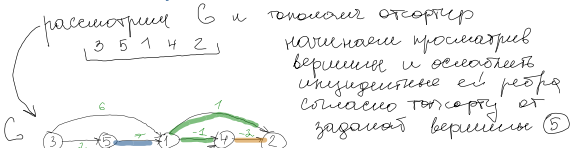 рассмотрим G и тополог отсортир
3 5 1 4 2
начинаем просматрив
вершины и ослаблять
инцидентные ей ребра
согласно топсорту от
заданой вершины 5
6
1
G
3 5 1 4 2
-1 -2